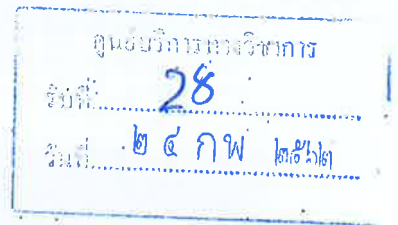 ศูนย์บริการทางวิชาการ
รับที่ 28
วันที่ ๒ ๔ กพ ๒๕๖๒